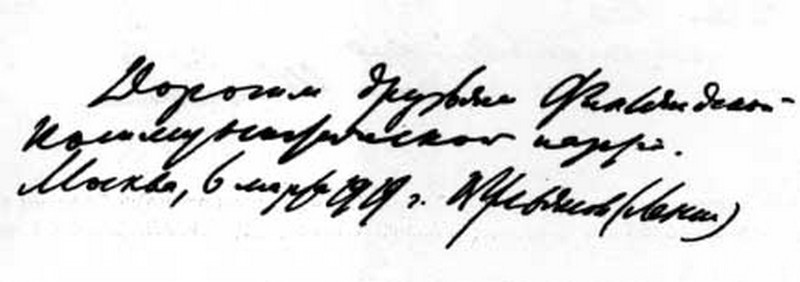 Дорогим друзьям Финляндской
Коммунистической партии.
Москва, 6 марта 1919 г. В. Ульянов (Ленин)